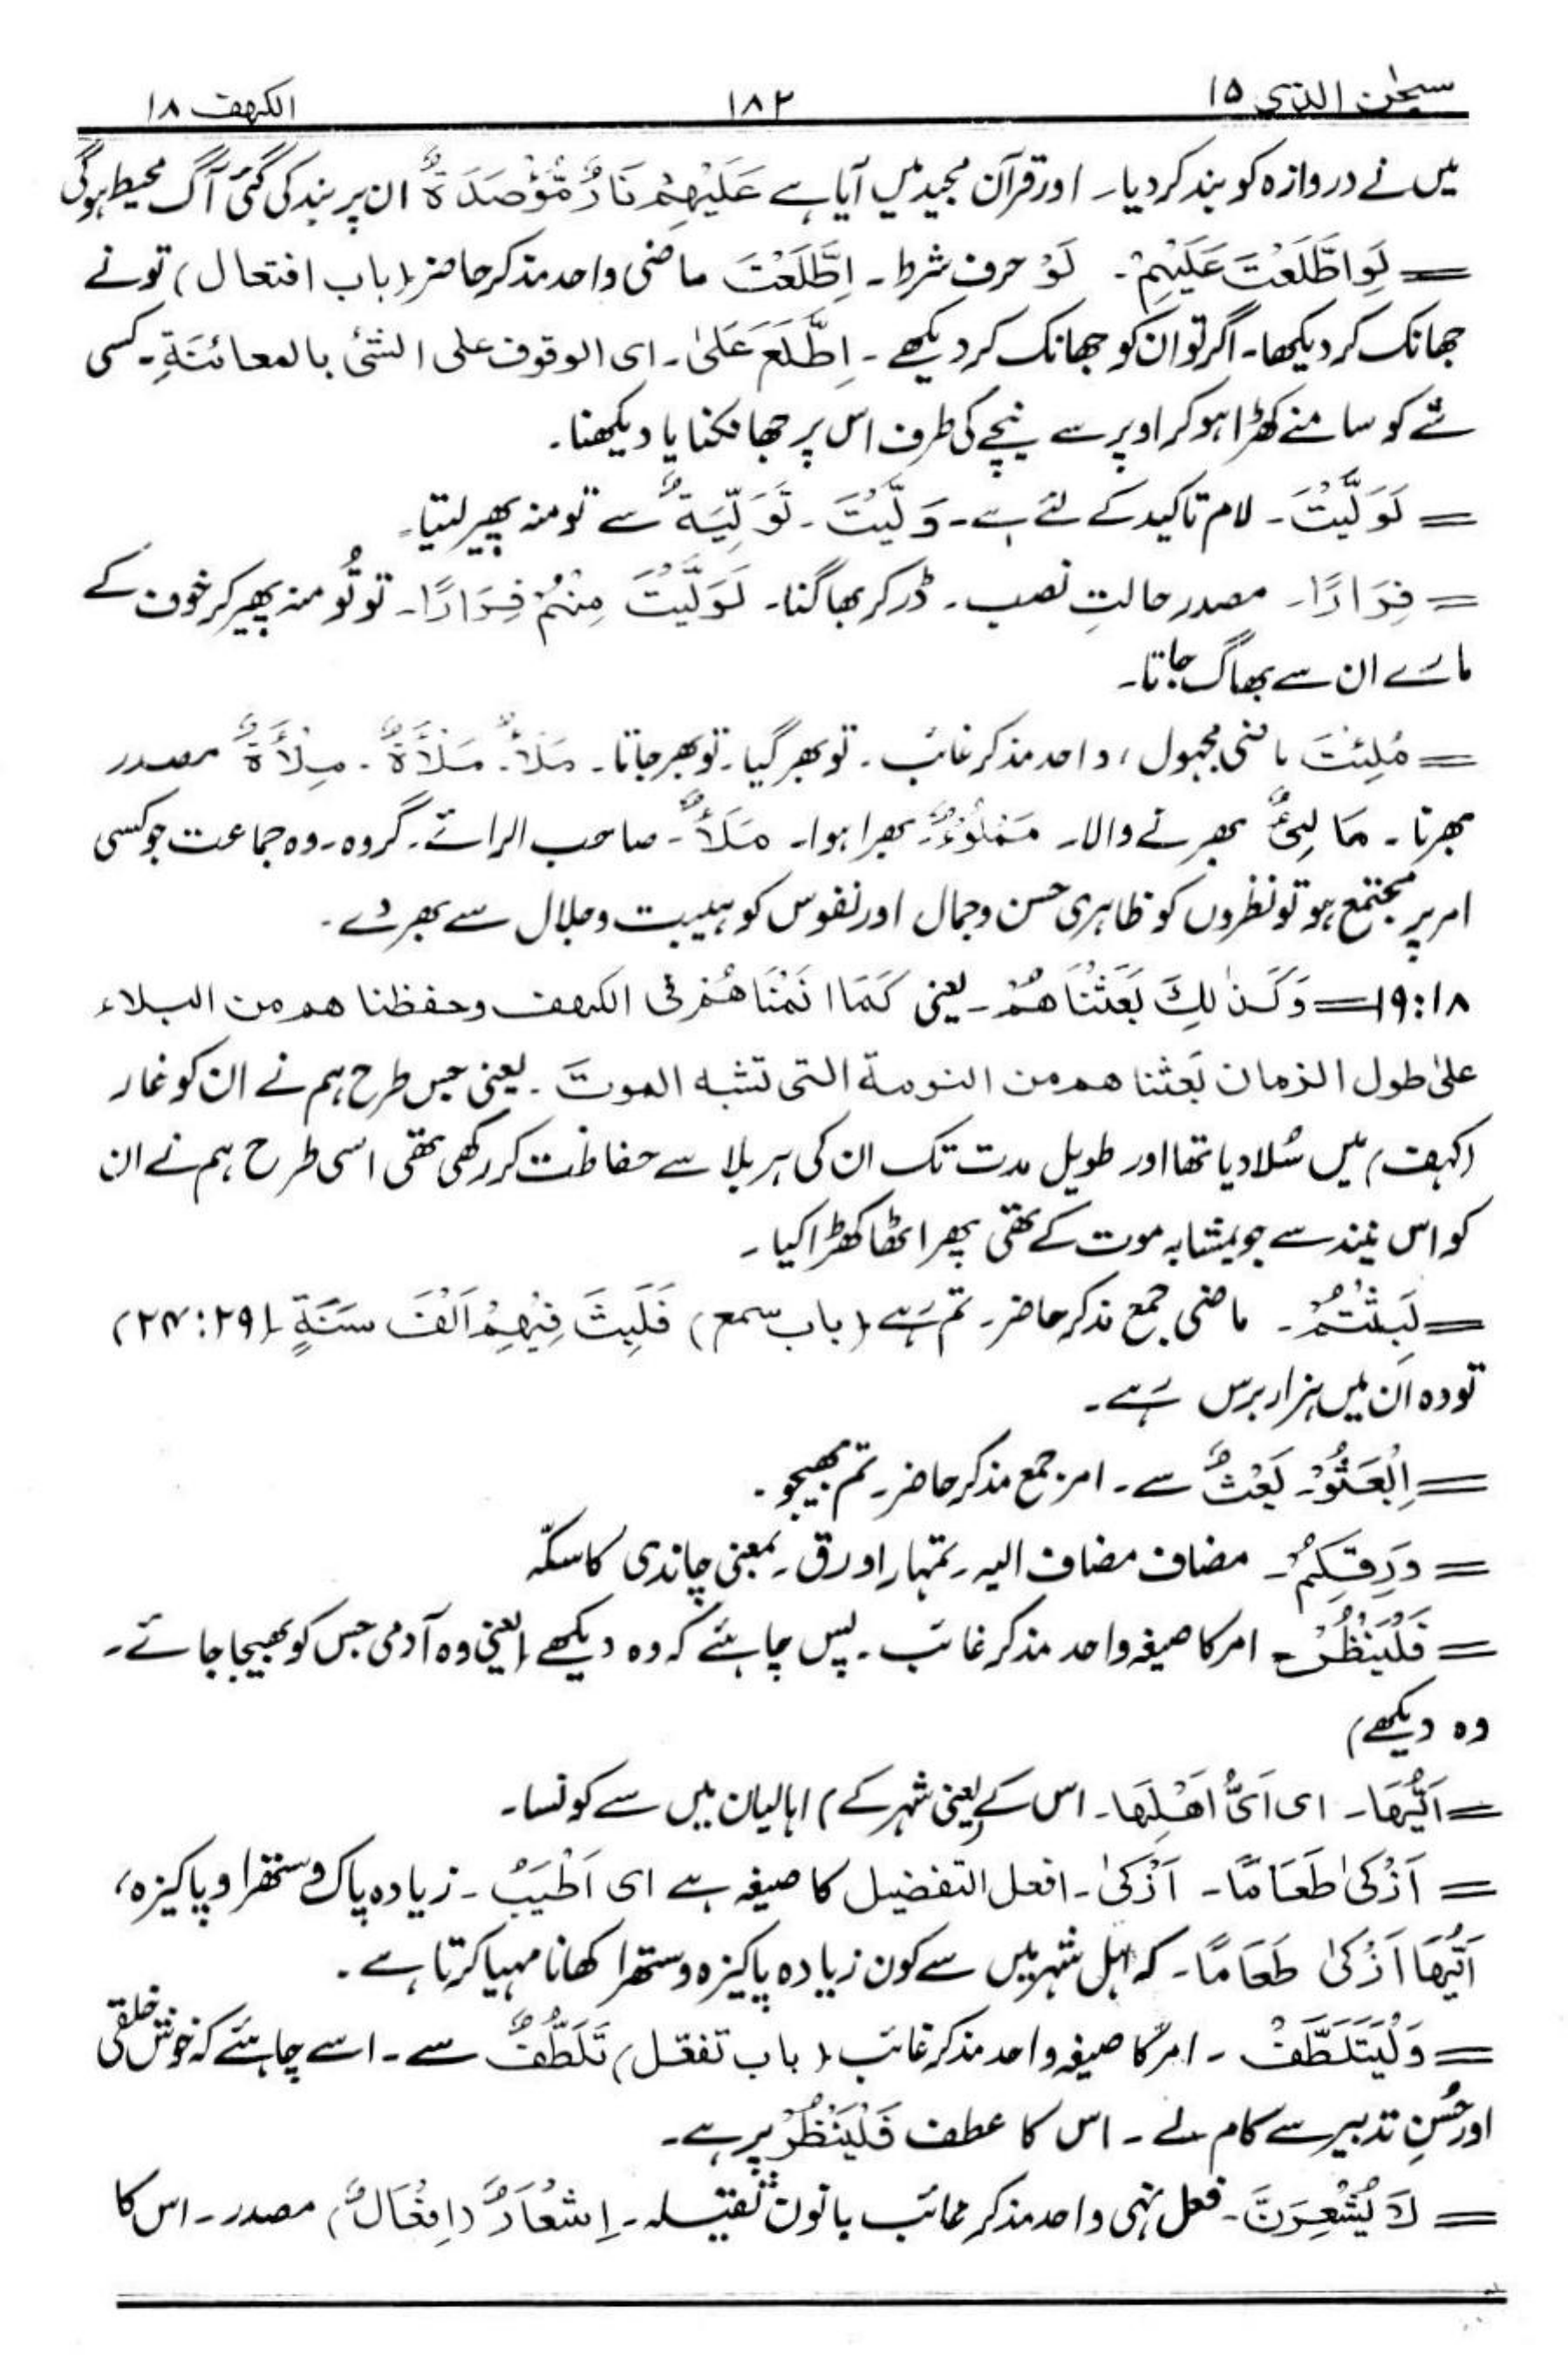 سبحٰن الذی ۱۵ ۱۸۲ الکہف ۱۸
میں نے دروازہ کو بند کر دیا۔ اور قرآن مجید میں آیا ہے عَلَیْهِمْ نَارٌ مُّؤْصَدَةٌ ان پر بند کی گئی آگ محیط ہوگی
= لَوِ اطَّلَعْتَ عَلَیْهِمْ۔ لَوْ حرف شرط۔ اِطَّلَعْتَ ماضی واحد مذکر حاضر (باب افتعال) تو نے
جھانک کر دیکھا۔ اگر تو ان کو جھانک کر دیکھے۔ اِطَّلَعَ عَلیٰ۔ ای الوقوف علی الشئ بالمعائنَةِ۔ کسی
شے کو سامنے کھڑا ہو کر اوپر سے نیچے کی طرف اس پر جھانکنا یا دیکھنا۔
= لَوَلَّیْتَ۔ لام تاکید کے لئے ہے۔ وَلَّیْتَ۔ تَوَلِّیَةٌ سے تو منہ پھیر لیتا۔
= فِرَارًا۔ مصدر حالتِ نصب۔ ڈر کر بھاگنا۔ لَوَلَّیْتَ مِنْهُمْ فِرَارًا۔ تو تُو منہ پھیر کر خوف کے
مارے ان سے بھاگ جاتا۔
= مُلِئْتَ ماضی مجہول، واحد مذکر غائب۔ تو بھر گیا۔ تو بھر جاتا۔ مَلَأٌ۔ مَلْأَةٌ۔ مِلْأَةٌ مصدر
بھرنا۔ مَالِیءٌ بھرنے والا۔ مَمْلُوْءٌ۔ بھرا ہوا۔ مَلَأٌ۔ صاحب الرائے۔ گروہ۔ وہ جماعت جو کسی
امر پر مجتمع ہو تو نظروں کو ظاہری حسن و جمال اور نفوس کو ہیبت و جلال سے بھر دے۔
۱۸:۱۹ = وَكَذٰلِكَ بَعَثْنَاهُمْ۔ یعنی كَمَا اَنَمْنَاهُمْ فی الكهف وحفظناهم من البلاء
علیٰ طول الزمان بَعثناهم من النومة التی تشبه الموتَ۔ یعنی جس طرح ہم نے ان کو غار
(کہف) میں سُلا دیا تھا اور طویل مدت تک ان کی ہر بلا سے حفاظت کر رکھی تھی اسی طرح ہم نے ان
کو اس نیند سے جو مشابہ موت کے تھی پھر اٹھا کھڑا کیا۔
= لَبِثْتُمْ۔ ماضی جمع مذکر حاضر۔ تم رہے (باب سمع) فَلَبِثَ فِیْهِمْ اَلْفَ سَنَةٍ (۲۹:۲۴)
تو وہ ان میں ہزار برس رہے۔
= اِبْعَثُوْ۔ بَعْثٌ سے۔ امر جمع مذکر حاضر۔ تم بھیجو۔
= وَرِقِكُمْ۔ مضاف مضاف الیہ۔ تمہارا ورق۔ بمعنی چاندی کا سکّہ
= فَلْیَنْظُرْ۔ امر کا صیغہ واحد مذکر غائب۔ پس چاہئے کہ وہ دیکھے (یعنی وہ آدمی جس کو بھیجا جائے۔
وہ دیکھے)
= اَیُّهَا۔ ای اَیُّ اَهْلِهَا۔ اس کے (یعنی شہر کے) اہالیان میں سے کونسا۔
= اَزْکیٰ طَعَامًا۔ اَزْکیٰ۔ افعل التفضیل کا صیغہ ہے ای اَطْیَبُ۔ زیادہ پاک و ستھرا و پاکیزہ،
اَیُّهَا اَزْکیٰ طَعَامًا۔ کہ اہل شہر میں سے کون زیادہ پاکیزہ و ستھرا کھانا مہیا کرتا ہے۔
= وَلْیَتَلَطَّفْ۔ امر کا صیغہ واحد مذکر غائب (باب تفعّل) تَلَطُّفٌ سے۔ اسے چاہئے کہ خوش خلقی
اور حُسنِ تدبیر سے کام لے۔ اس کا عطف فَلْیَنْظُرْ پر ہے۔
= لَا یُشْعِرَنَّ۔ فعل نہی واحد مذکر غائب بانون ثقیلہ۔ اِشْعَارٌ (اِفْعَالٌ) مصدر۔ اس کا